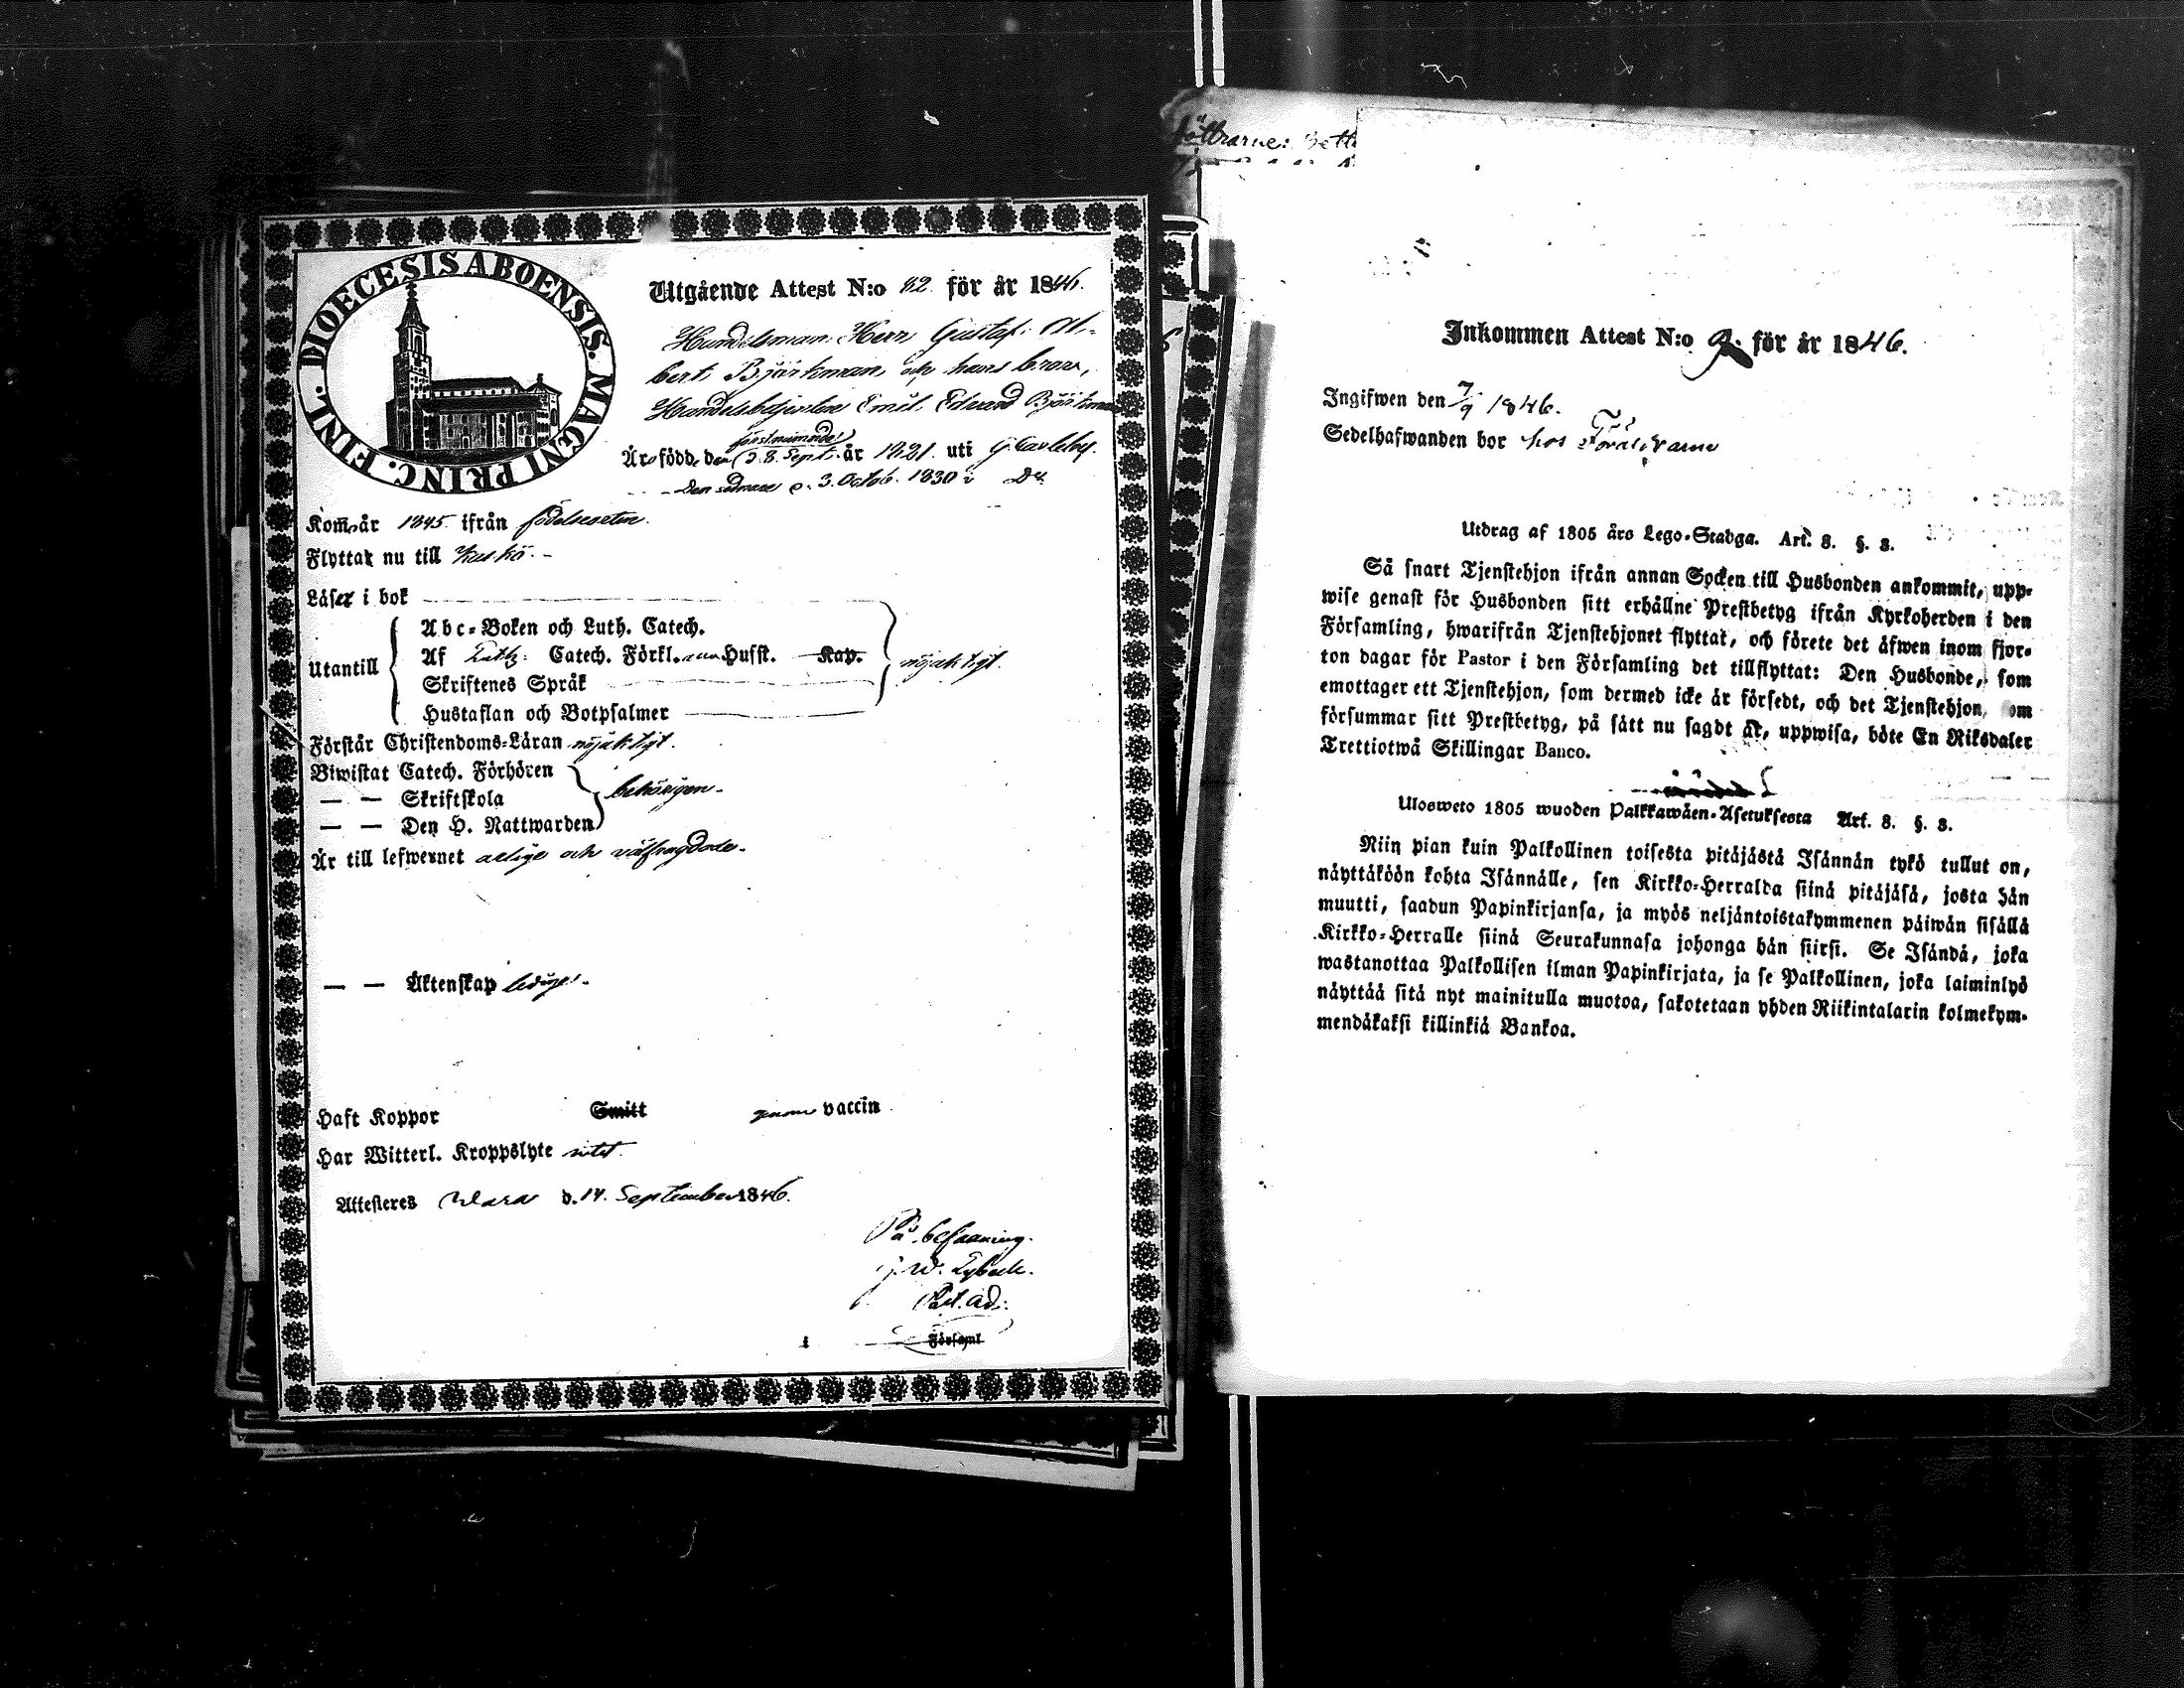 DIOECESIS ABOENSIS. MAGNI PRINC. FINL.
Utgående Attest N:o 82. för år 1846.
Handelsman Herr Gustaf Al-
bert Björkman och hans broder,
Handelsbetjenten Emil Edvard Björkman
förstnämnde
Äro född den 28. Sept. år 1821. uti G. Carleby.
den sednare d. 3. Octob. 1830 i Do
Kom år 1845 ifrån födelseorten.
Flyttar nu till Kaskö. –
Läser i bok
Utantill
Abc-Boken och Luth. Catech.
Af Luth: Catech. Förkl. Hussl. Kap.
Skriftenes Språk
Hustaflan och Botpsalmer
nöjaktigt.
Förstår Christendoms-Läran nöjaktigt.
Biwistat Catech. Förhören
— — Skriftskola
— — Den H. Nattwarden
behörigen.
Är till lefwernet
— — Äktenskap ledige.
Haft Koppor Smitt genom vaccin
Har Witterl. Kroppslyte intet
Attesteres Wasa d. 14. September 1846.
På befallning.
J. W. Lybeck.
Past. adj.
i Församl
döttrarne:
Inkommen Attest N:o 9. för år 1846.
Ingifwen den 7/9 1846.
Sedelhafwanden bor hos Föräldrarne
Utdrag af 1805 års Lego-Stadga. Art. 8. §. 8.
Så snart Tjenstehjon ifrån annan Socken till Husbonden ankommit, upp-
wise genast för Husbonden sitt erhållne Prestbetyg ifrån Kyrkoherden i den
Församling, hwarifrån Tjenstehjonet flyttat, och förete det äfwen inom fjor-
ton dagar för Pastor i den Församling det tillflyttat: Den Husbonde, som
emottager ett Tjenstehjon, som dermed icke är försedt, och det Tjenstehjon, som
försummar sitt Prestbetyg, på sätt nu sagdt är, uppwisa, böte En Riksdaler
Trettiotwå Skillingar Banco.
Ulosweto 1805 wuoden Palkkawäen-Asetuksesta Art. 8. §. 8.
Niin pian kuin Palkollinen toisesta pitäjästä Isännän tykö tullut on,
näyttäköön kohta Isännälle, sen Kirkko-Herralda siinä pitäjäsä, josta hän
muutti, saadun Papinkirjansa, ja myös neljäntoistakymmenen päiwän sisällä
Kirkko-Herralle siinä Seurakunnasa johonga hän siirsi. Se Isändä, joka
wastanottaa Palkollisen ilman Papinkirjata, ja se Palkollinen, joka laiminlyö
näyttää sitä nyt mainitulla muotoa, sakotetaan yhden Riikintalarin kolmekym-
mendäkaksi killinkiä Bankoa.